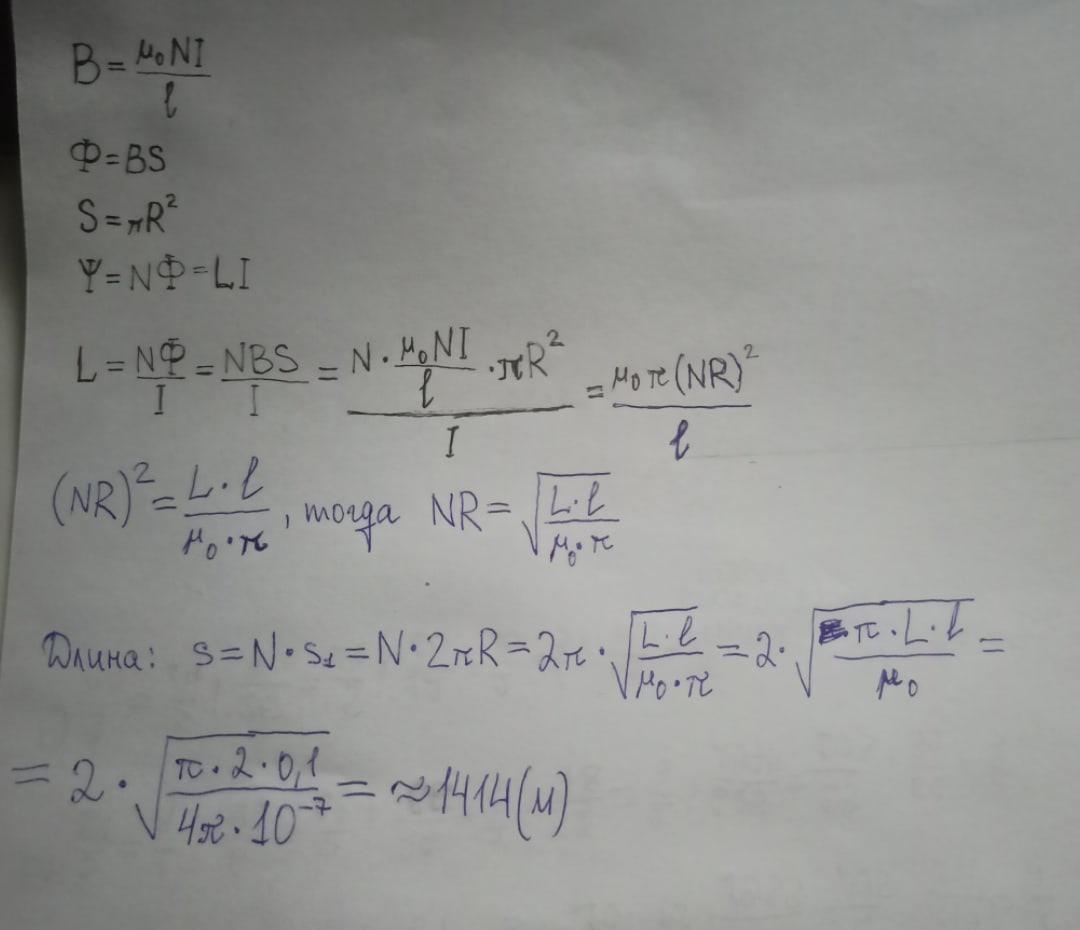 B = μ₀NI / l
Ф = BS
S = πR²
Ψ = NФ = LI
L = NФ / I = NBS / I = (N · μ₀NI / l · πR²) / I = μ₀π(NR)² / l
(NR)² = L · l / μ₀ · π , тогда NR = √(L · l / μ₀ · π)
Длина: s = N · s₁ = N · 2πR = 2π · √(L · l / μ₀ · π) = 2 · √(π · L · l / μ₀) =
= 2 · √(π · 2 · 0,1 / 4π · 10⁻⁷) = ≈ 1414 (м)